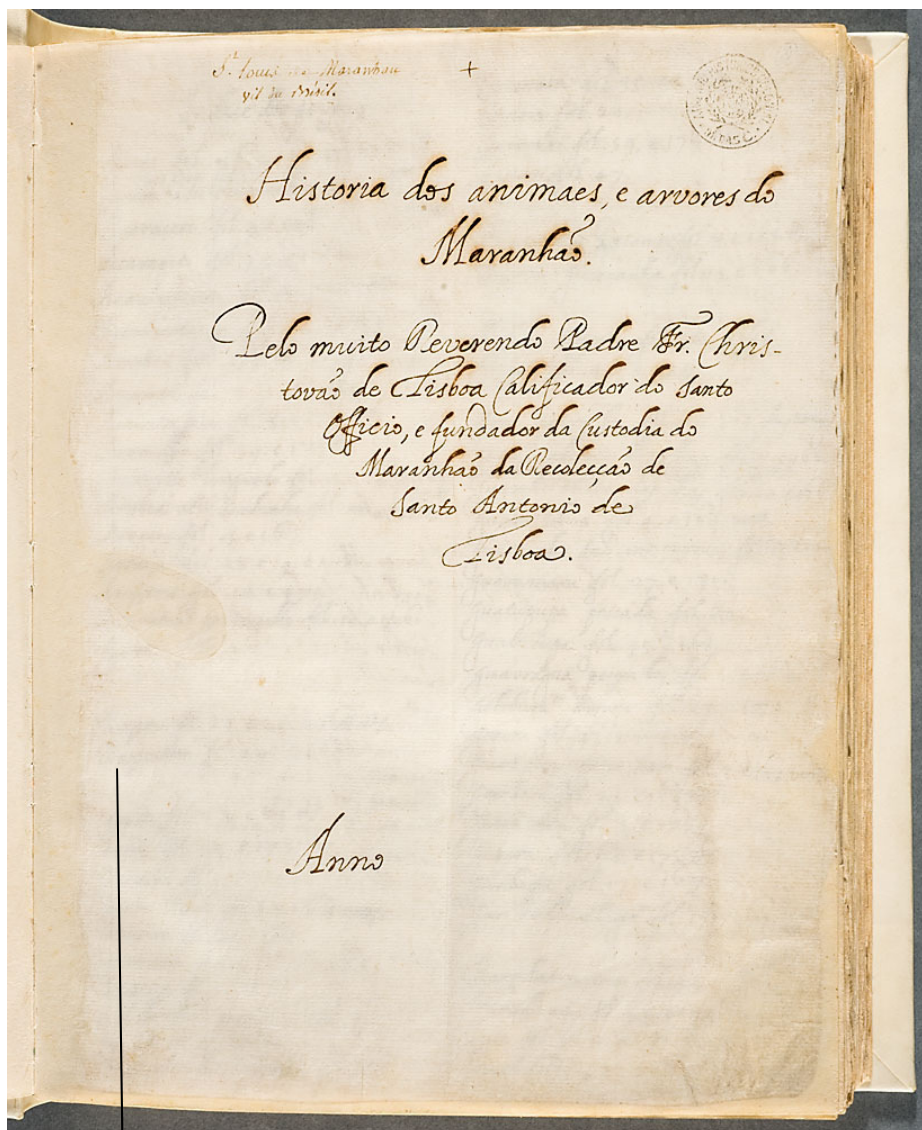 St. Louis de Maranhau
vil du Brésil.
+
Historia dos animaes, e arvores do
Maranhaõ.
Pelo muito Reverendo Padre Fr. Chris-
tovaõ de Lisboa Calificador do Santo
Officio, e fundador da Custodia do
Maranhaõ da Recolecçaõ de
Santo Antonio de
Lisboa.
Anno